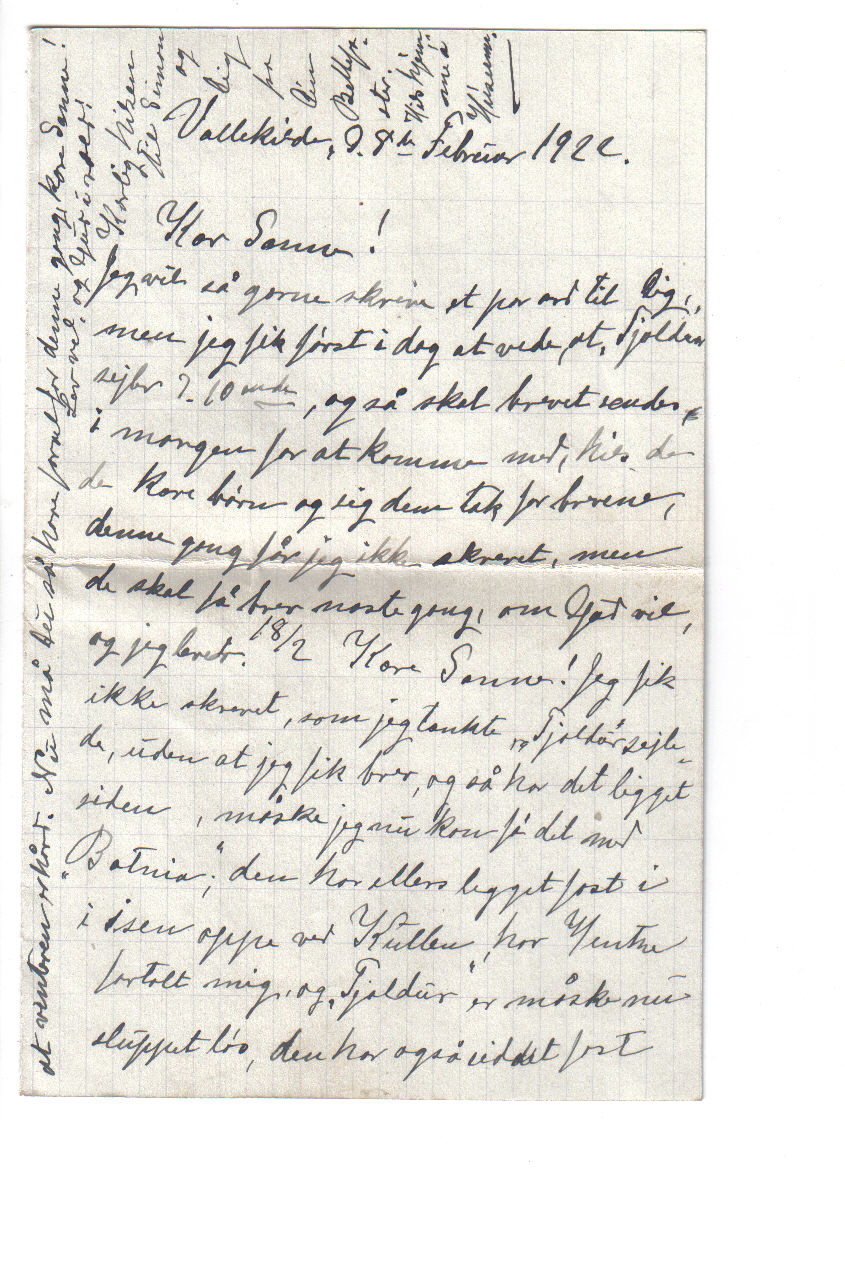 Vallekilde, d. 8de Februar 1922.
Kær Sanne!
Jeg vil så gærne skrive et par ord til Dig,
men jeg fik først i dag at vide, at „Tjaldur
sejler d. 10ende, og så skal brevet sendes
i morgen for at komme med, hils de
de kære børn og sig dem tak for brevene,
denne gang får jeg ikke skrevet, men
de skal få brev næste gang, om Gud vil,
og jeg lever. 18/2 Kære Sanne! Jeg fik
ikke skrevet, som jeg tænkte, „Tjaldur" sejle-
de, uden at jeg fik brev, og så har det ligget
siden, måske jeg nu kan få det med
„Botnia", den har ellers ligget fast i
i isen oppe ved Kullen, har
fortalt mig, og „Tjaldur" er måske nu
sluppet løs, den har også siddet fast
at vintren er hård. Nu må Du så have farvel for denne gang, kære Sanne!
Lev vel og Gud i vold!
Kærlig hilsen
til Simon
og
Dig
fra
Din
Hils hjem
små
i Husum.